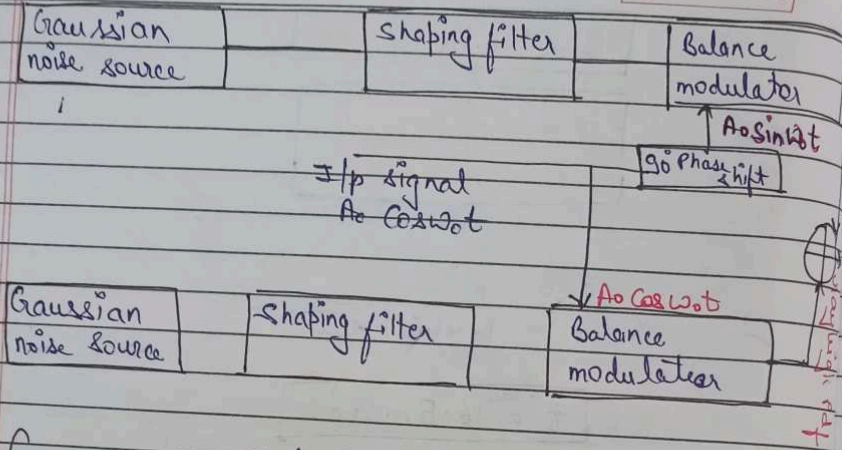 Gaussian
noise source
Shaping filter
Balance
modulator
AoSinω₀t
90° Phase
shift
I/p signal
Ao Cosω₀t
Ao Cosω₀t
Gaussian
noise source
Shaping filter
Balance
modulator